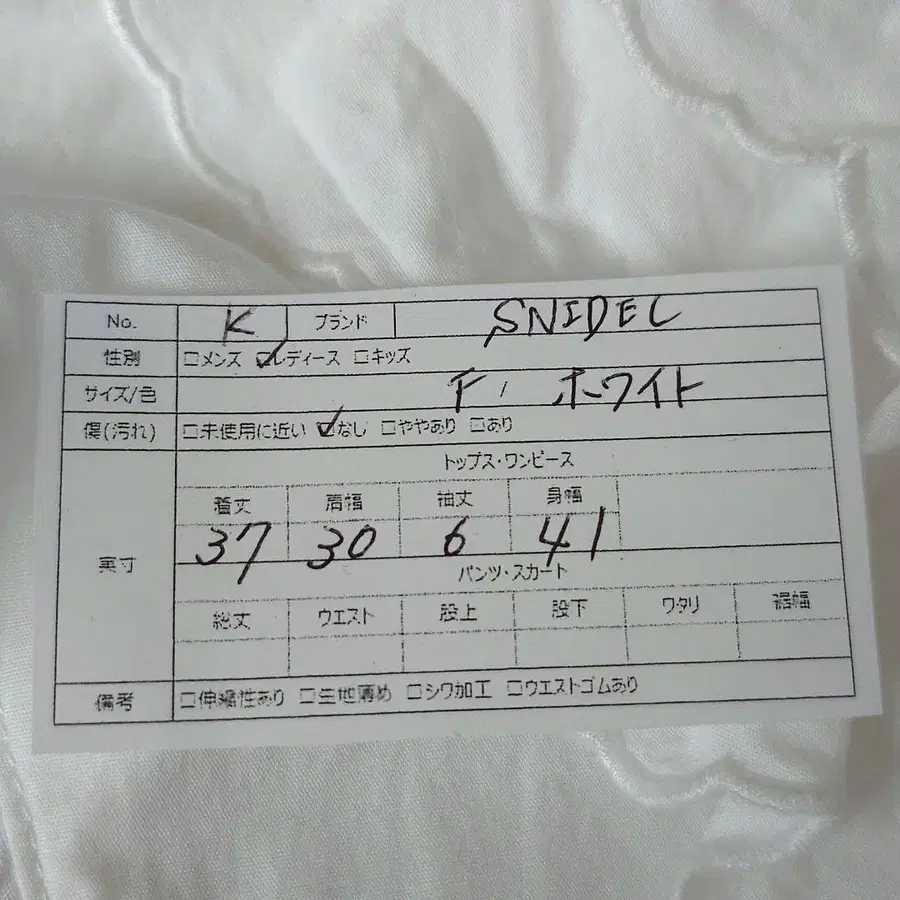 No. K ブランド SNIDEL
性別 □メンズ ☑レディース □キッズ
サイズ/色 F, ホワイト
傷(汚れ) □未使用に近い ☑なし □ややあり □あり
トップス・ワンピース
着丈 肩幅 袖丈 身幅
37 30 6 41
実寸
パンツ・スカート
総丈 ウエスト 股上 股下 ワタリ 裾幅
備考 □伸縮性あり □生地薄め □シワ加工 □ウエストゴムあり